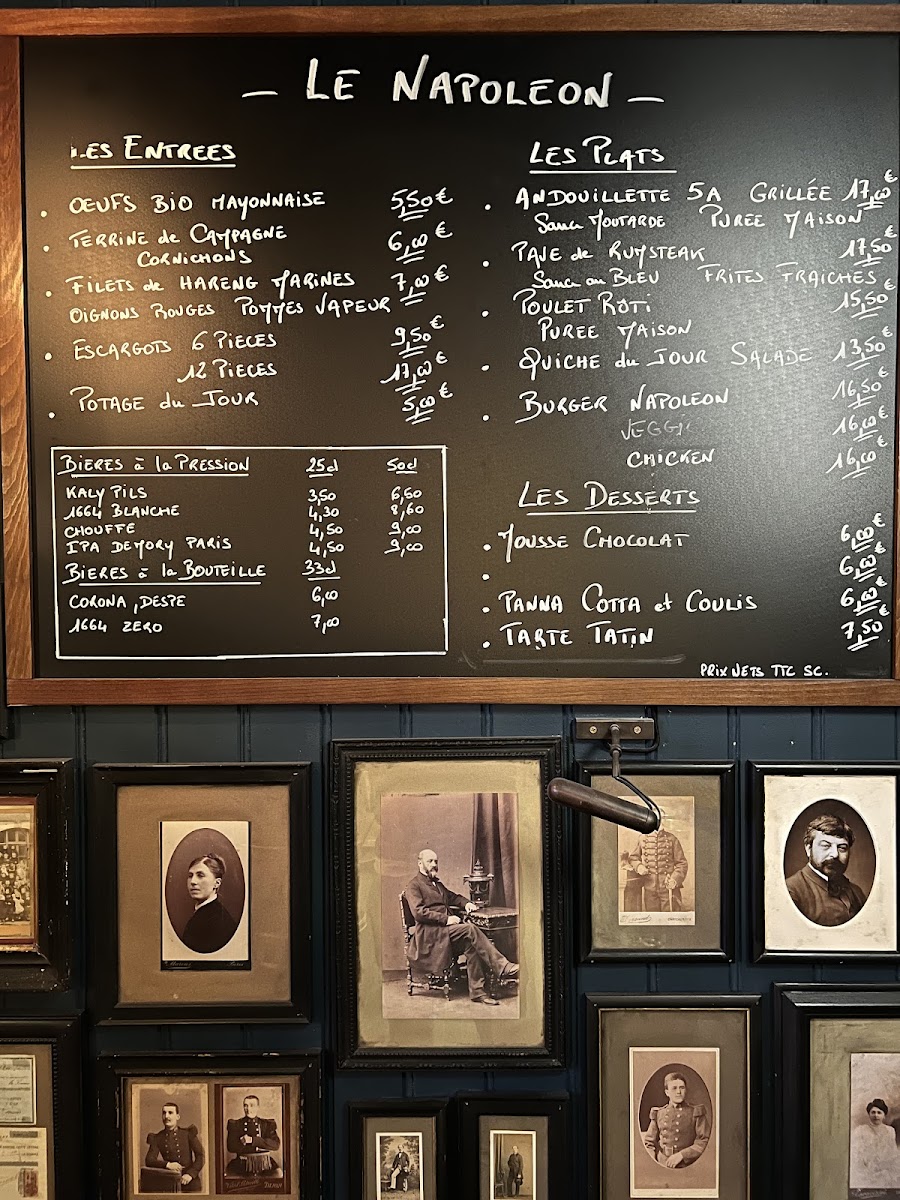 - LE NAPOLEON -
LES ENTREES
• OEUFS BIO MAYONNAISE 5,50€
• TERRINE de CAMPAGNE 6,00€
CORNICHONS
• FILETS de HARENG MARINES 7,00€
OIGNONS ROUGES POMMES VAPEUR
• ESCARGOTS 6 PIECES 9,50€
12 PIECES 17,00€
• POTAGE du JOUR 5,00€
BIERES à la PRESSION 25cl 50cl
KALY PILS 3,50 6,60
1664 BLANCHE 4,30 8,60
CHOUFFE 4,50 9,00
IPA DEMORY PARIS 4,50 9,00
BIERES à la BOUTEILLE 33cl
CORONA, DESPE 6,00
1664 ZERO 7,00
LES PLATS
• ANDOUILLETTE 5A GRILLÉE 17,00€
Sauce MOUTARDE PUREE MAISON
• PAVE de RUMSTEAK 17,50€
Sauce au BLEU FRITES FRAICHES
• POULET ROTI 15,50€
PUREE MAISON
• QUICHE du JOUR SALADE 13,50€
• BURGER NAPOLEON 16,50€
VEGGIE 16,00€
CHICKEN 16,00€
LES DESSERTS
• MOUSSE CHOCOLAT 6,00€
• 6,00€
• PANNA COTTA et COULIS 6,00€
• TARTE TATIN 7,50€
PRIX NETS TTC SC.